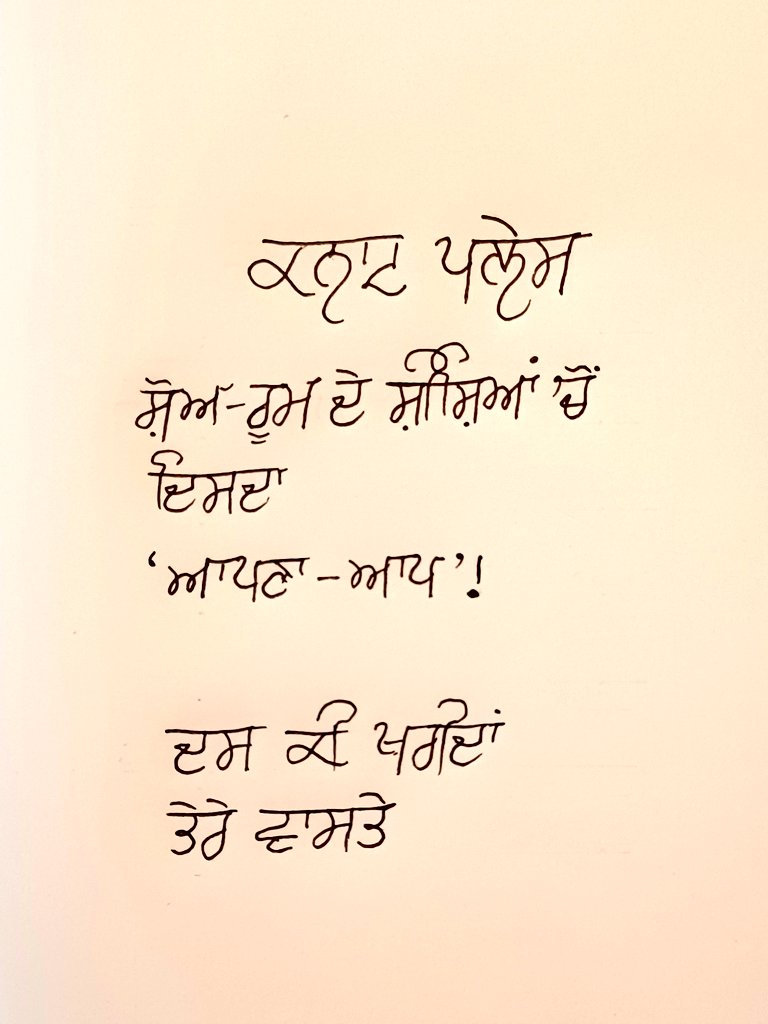 ਕਨਾਟ ਪਲੇਸ
ਸ਼ੋਅ-ਰੂਮ ਦੇ ਸ਼ੀਸ਼ਿਆਂ 'ਚੋਂ
ਦਿਸਦਾ
'ਆਪਣਾ-ਆਪ'!
ਦਸ ਕੀ ਖਰੀਦਾਂ
ਤੇਰੇ ਵਾਸਤੇ